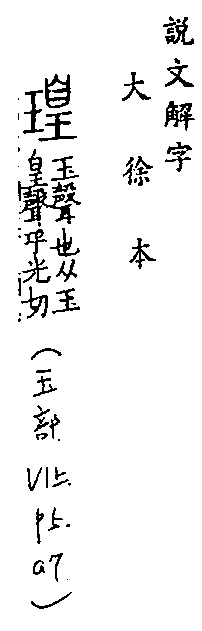 說文解字
大徐本
瑝
玉聲也从玉
皇聲乎光切
(玉部
V15.
p5.
a7.)